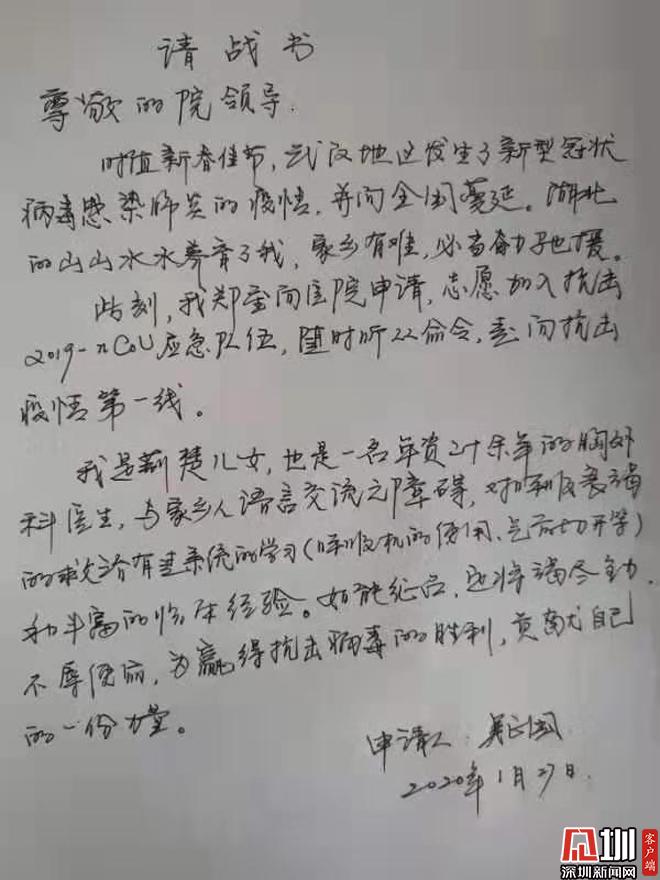 请战书
尊敬的院领导.
时值新春佳节,武汉地区发生了新型冠状
病毒感染肺炎的疫情,并向全国蔓延。湖北
的山山水水养育了我,家乡有难,必当奋力驰援。
此刻,我郑重向医院申请,志愿加入抗击
2019-nCoV应急队伍,随时听从命令,走向抗击
疫情第一线。
我是荆楚儿女,也是一名年资二十余年的胸外
科医生,与家乡人语言交流无障碍,对呼吸衰竭
的救治有过系统的学习(呼吸机的使用、气管切开等)
和丰富的临床经验。如能征召,必将竭尽全力,
不辱使命,为赢得抗击病毒的胜利,贡献自己
的一份力量。
申请人:吴正国
2020年1月27日.
圳
深圳新闻网
客户端